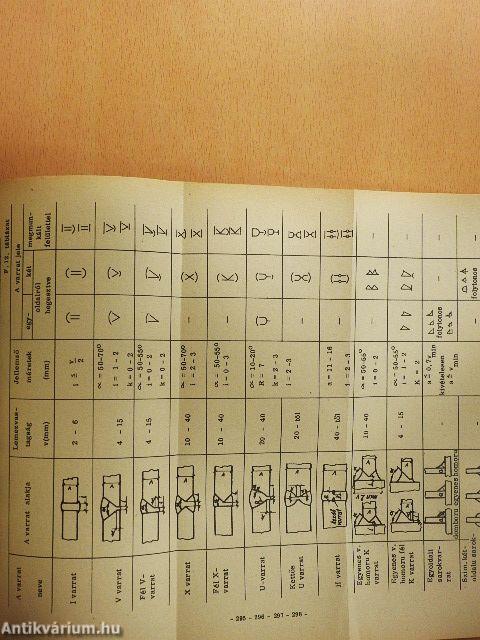 F.12. táblázat
A varrat neve
A varrat alakja
Lemezvastagság v(mm)
Jellemző méretek (mm)
A varrat jele
egy-
két
oldalról hegesztve
megmunkált felülettel
I varrat
2 - 6
V varrat
4 - 15
∝ = 50-70°
i = 1 - 2
k = 0 - 2
Fél V-varrat
4 - 15
∝ = 50-55°
i = 0 - 2
k = 0 - 2
X varrat
10 - 40
∝ = 50-70°
i = 2 - 3
-
Fél X-varrat
10 - 40
∝ = 50-55°
i = 0 - 3
-
U-varrat
20 - 40
∝ = 10-20°
R = 7
k = 2 - 3
Kettős U varrat
20 - től
i = 2 - 3
-
II varrat
40 - től
a = 11 - 16
i = 2 - 3
-
Egyenes v. homoru K varrat
10 - 40
i = 0 - 2
-
-
Egyenes v. homoru fél K varrat
4 - 15
i = 1 - 2
K = 2
-
Egyoldali sarokvarrat
domboru egyenes homoru
-
kivételesen
folytonos
-
-
Szim. két-
oldalu sarok-
-
folytonos
- 295 - 296 - 297 - 298 -
Antikvárium.hu